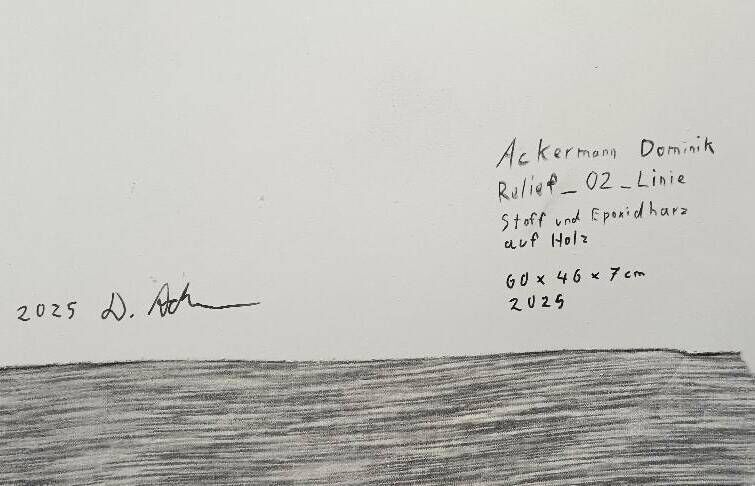 Ackermann Dominik
Relief_02_Linie
Stoff und Epoxidharz
auf Holz
60 x 46 x 7 cm
2025
2025 D. Ack